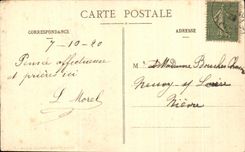 CARTE POSTALE
CORRESPONDANCE
ADRESSE
7-10-20
Pensée affectueuse
et prières ici
L. Morel
M
Madame
Neuvy s/ Loire
Nièvre